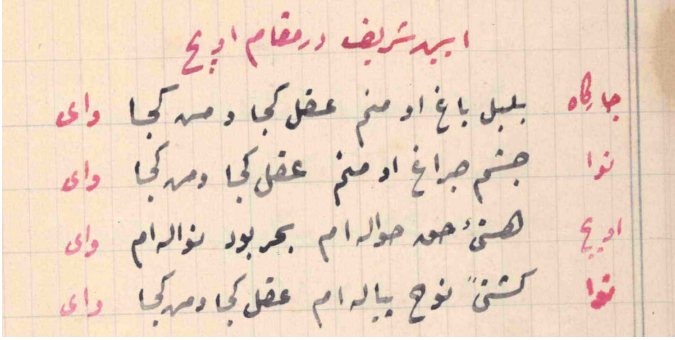 آیین شریف در مقام اوج
چارگاه بلبل باغ او منم عقل کجا و من کجا وای
نوا چشم چراغ او منم عقل کجا و من کجا وای
اوج هستئ حق حواله ام بحر بود نواله ام وای
نوا کشتئ نوح پیاله ام عقل کجا و من کجا وای